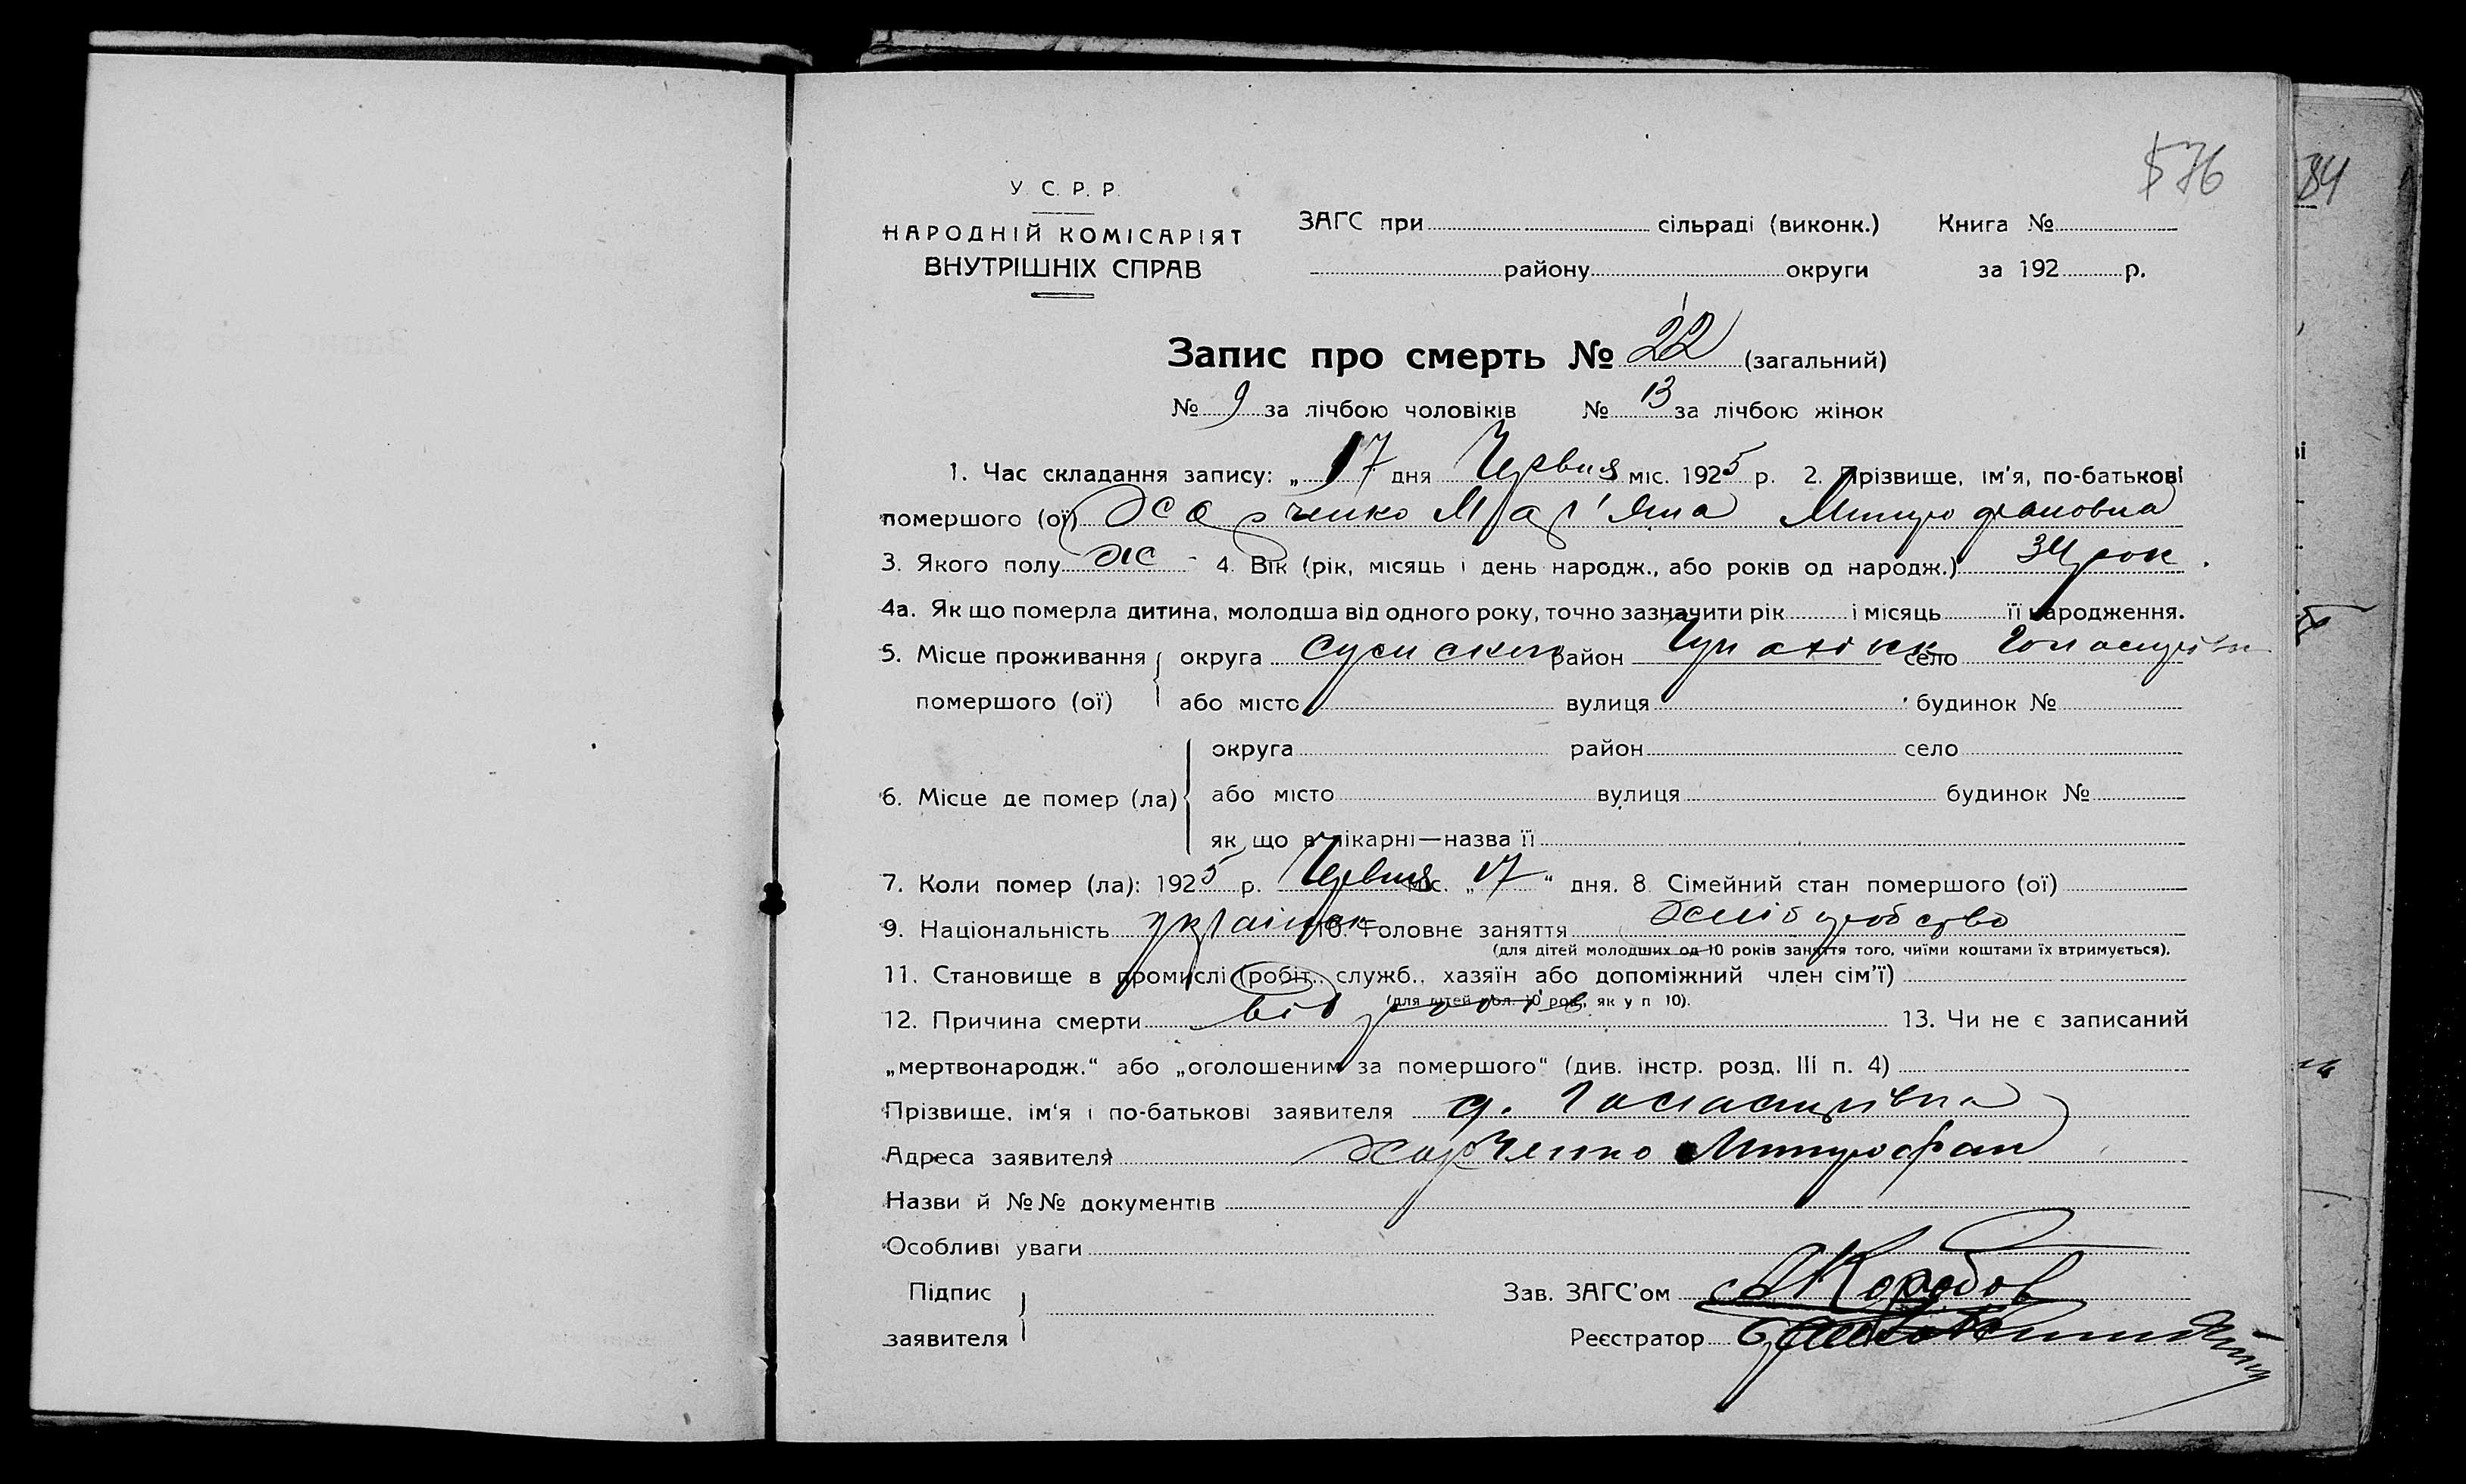 576
84
У. С. Р. Р.
НАРОДНІЙ КОМІСАРІЯТ
ВНУТРІШНІХ СПРАВ
ЗАГС при сільраді (виконк.) Книга №
району округи за 192 р.
Запис про смерть № 22 (загальний)
№ 9 за лічбою чоловіків № 13 за лічбою жінок
1. Час складання запису: „ 17 дня Червня міс. 1925 р. 2. Прізвище, ім'я, по-батькові
померлого (ої) Харченко Мар'яна Митрофановна
3. Якого полу ж - 4. Вік (рік, місяць і день народж., або років од народж.) 34 рок.
4а. Як що померла дитина, молодша від одного року, точно зазначити рік і місяць її народження.
5. Місце проживання округа Сумська район село
померлого (ої) або місто вулиця будинок №
округа район село
6. Місце де помер (ла) або місто вулиця будинок №
як що в лікарні—назва її
7. Коли помер (ла): 1925 р. Червня міс. „ 17 " дня. 8 Сімейний стан померлого (ої)
9. Національність українка 10. Головне заняття хліборобство
(для дітей молодших од 10 років заняття того, чиїми коштами їх втримується).
11. Становище в промислі (робіт., служб., хазяїн або допоміжний член сім'ї)
(для дітей мол. 10 рок., як у п 10).
12. Причина смерти від родів 13. Чи не є записаний
„мертвонародж." або „оголошеним за померлого" (див. інстр. розд. III п. 4)
Прізвище, ім'я і по-батькові заявителя
Адреса заявителя Харченко Митрофан
Назви й №№ документів
Особливі уваги
Підпис
заявителя
Зав. ЗАГС'ом Коробов
Реєстратор